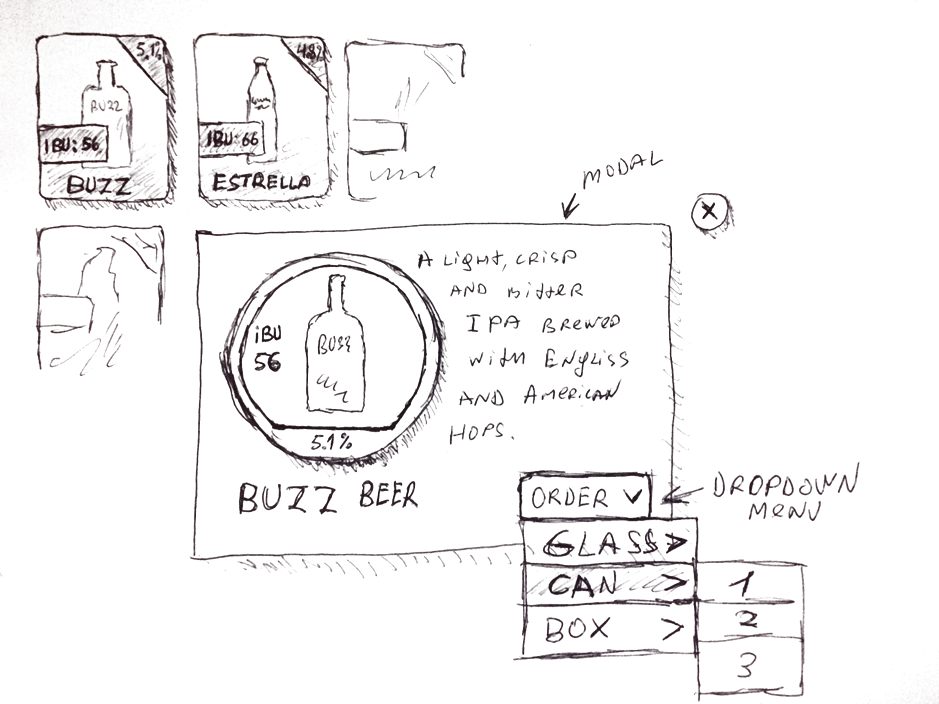 5.1%
BUZZ
IBU: 56
BUZZ
4.8%
IBU: 66
ESTRELLA
MODAL
X
IBU
56
BUZZ
5.1%
BUZZ BEER
A LIGHT, CRISP
AND BITTER
IPA BREWED
WITH ENGLISS
AND AMERICAN
HOPS.
ORDER
DROPDOWN
MENU
GLASS >
CAN >
BOX >
1
2
3